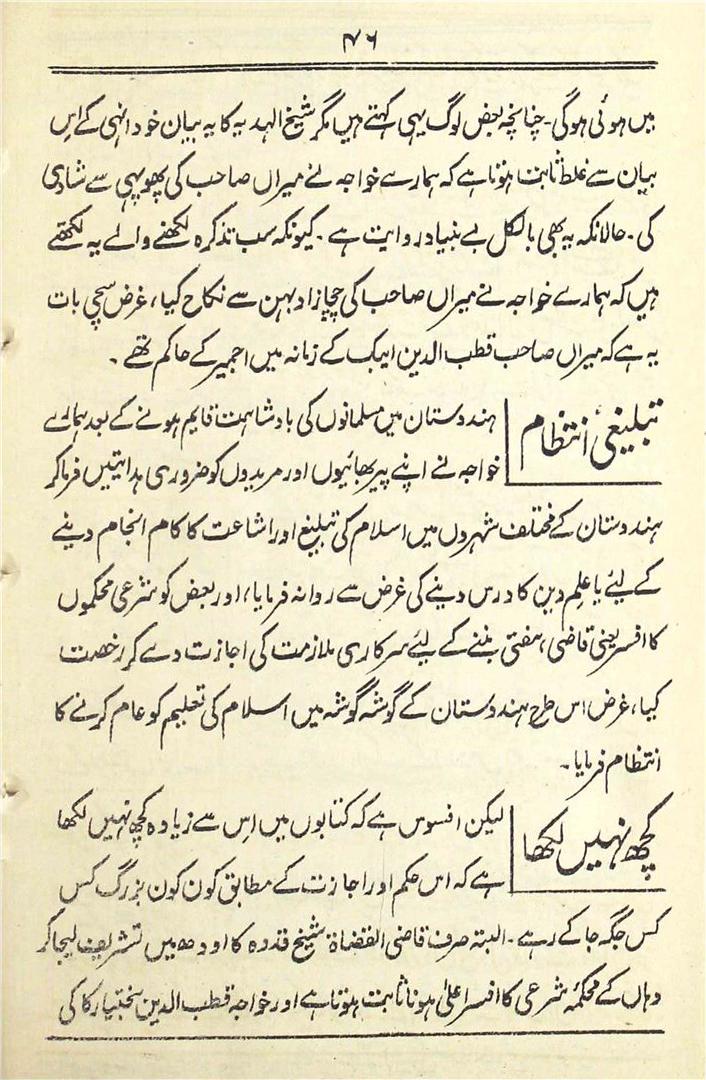 ۴۶
میں ہوئی ہوگی۔ چنانچہ بعض لوگ یہی کہتے ہیں مگر شیخ الہدیہ کا یہ بیان خود انہی کے اس
بیان سے غلط ثابت ہوتا ہے کہ ہمارے خواجہ نے میراں صاحب کی پھوپھی سے شادی
کی۔ حالانکہ یہ بھی بالکل بے بنیاد روایت ہے۔ کیونکہ سب تذکرہ لکھنے والے یہ لکھتے
ہیں کہ ہمارے خواجہ نے میراں صاحب کی چچازاد بہن سے نکاح کیا، غرض سچی بات
یہ ہے کہ میراں صاحب قطب الدین ایبک کے زمانہ میں اجمیر کے حاکم تھے۔
تبلیغی انتظام
ہندوستان میں مسلمانوں کی بادشاہت قایم ہونے کے بعد ہمارے
خواجہ نے اپنے پیر بھائیوں اور مریدوں کو ضروری ہدایتیں فرما کر
ہندوستان کے مختلف شہروں میں اسلام کی تبلیغ اور اشاعت کا کام انجام دینے
کے لئے یا علم دین کا درس دینے کی غرض سے روانہ فرمایا، اور بعض کو شرعی محکموں
کا افسر یعنی قاضی، مفتی بننے کے لئے سرکاری ملازمت کی اجازت دے کر رخصت
کیا، غرض اس طرح ہندوستان کے گوشہ گوشہ میں اسلام کی تعلیم کو عام کرنے کا
انتظام فرمایا۔
کچھ نہیں لکھا
لیکن افسوس ہے کہ کتابوں میں اِس سے زیادہ کچھ نہیں لکھا
ہے کہ اس حکم اور اجازت کے مطابق کون کون بزرگ کس
کس جگہ جا کے رہے۔ البتہ صرف قاضی القضاۃ شیخ قدوہ کا اودھ میں تشریف لیجا کر
وہاں کے محکمۂ شرعی کا افسر اعلیٰ ہونا ثابت ہوتا ہے اور خواجہ قطب الدین بختیار کاکی